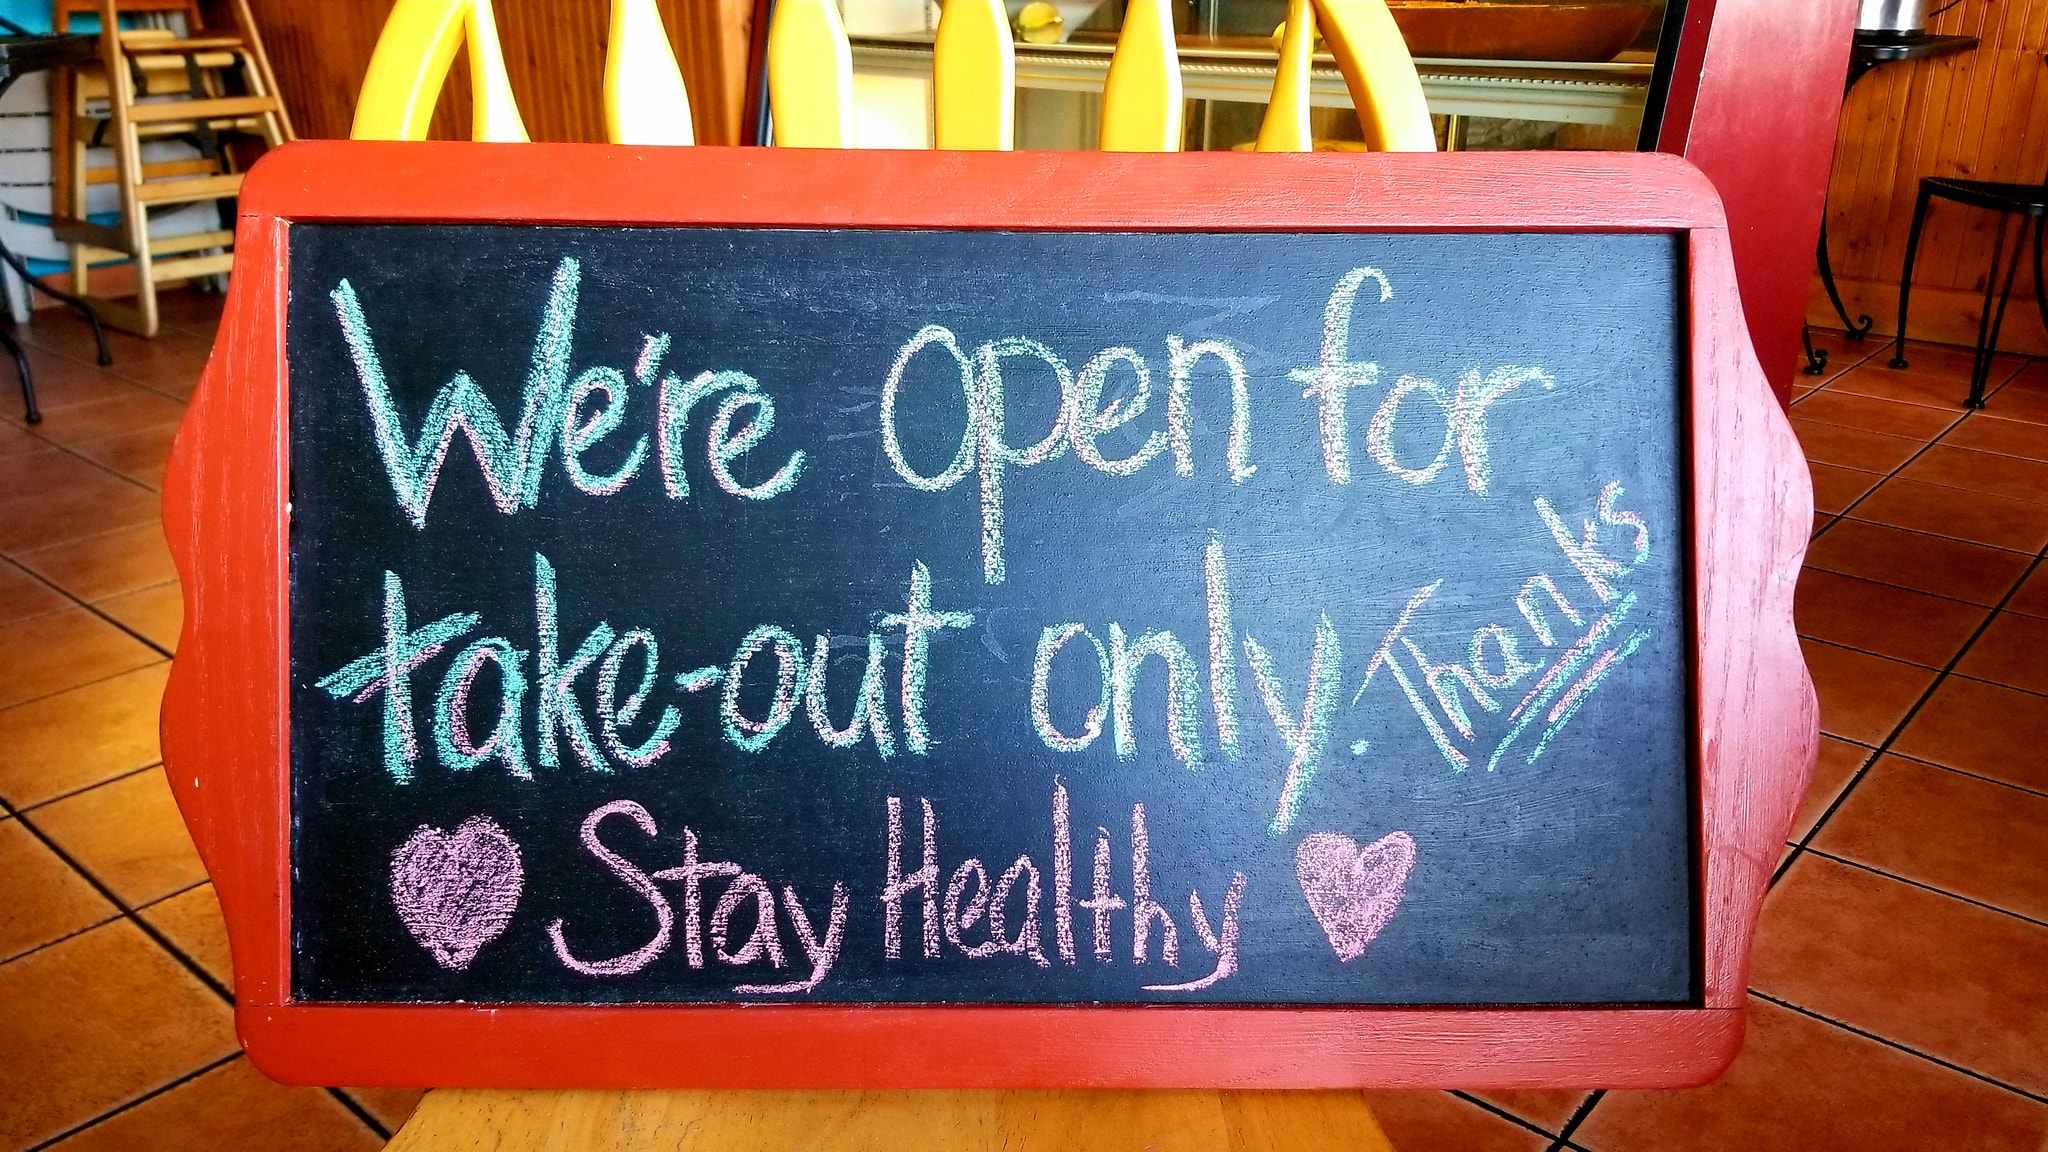 We're open for
take-out only. Thanks
Stay Healthy